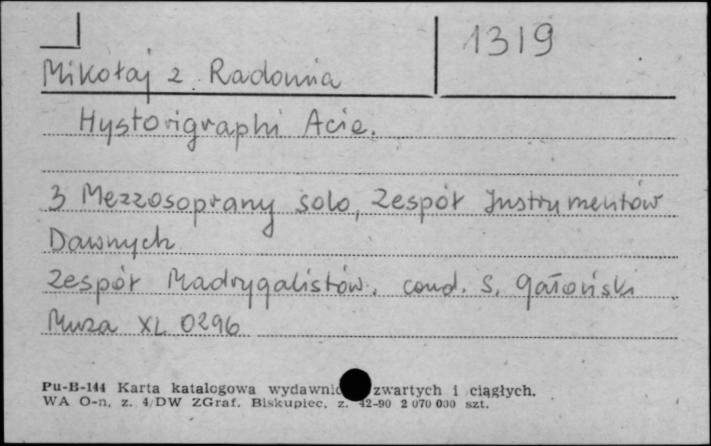 1319
Mikołaj z Radomia
Hystorigraphi Acie.
3 Mezzosoprany solo, Zespół Instrumentów
Dawnych
Zespół Madrygalistów. cond. S. Gałoński
Muza XL 0296
Pu-B-144 Karta katalogowa wydawnic zwartych i ciągłych.
WA O-n, z. 4/DW ZGraf. Biskupiec, z. 42-90 2 070 000 szt.